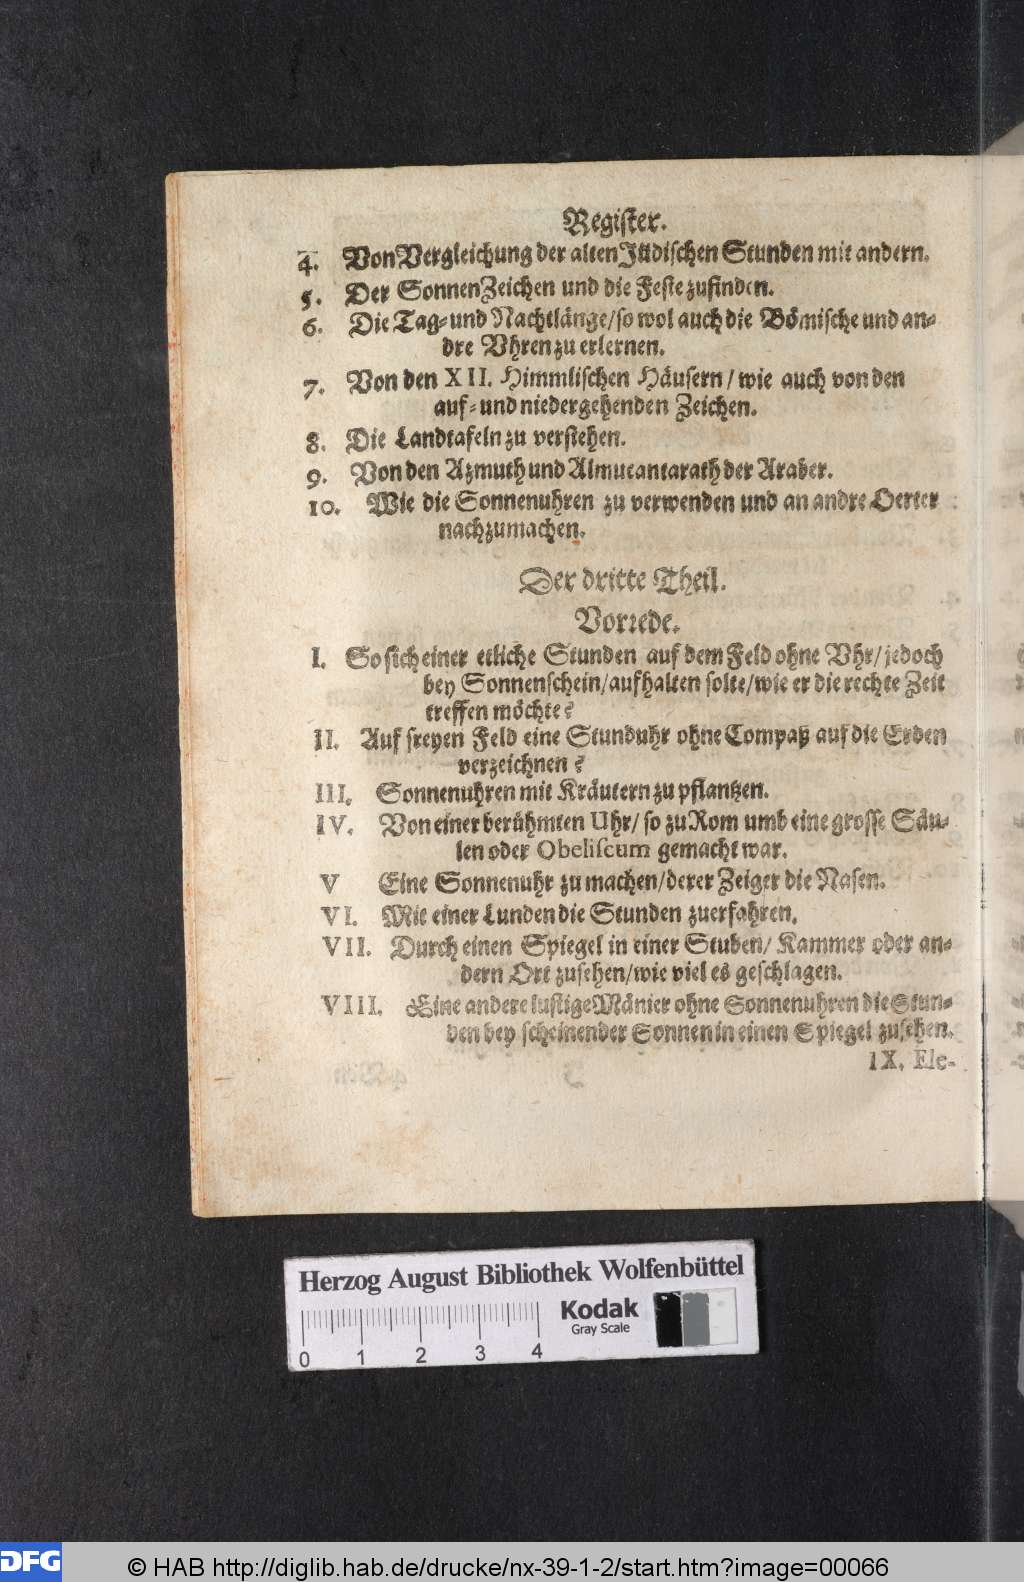 Register.
4. Von Vergleichung der alten Jüdischen Stunden mit andern.
5. Der SonnenZeichen und die Feste zufinden.
6. Die Tag- und Nachtlänge/ so wol auch die Bömische und an-
dre Vhren zu erlernen.
7. Von den XII. Himmlischen Häusern/ wie auch von den
auf- und niedergehenden Zeichen.
8. Die Landtafeln zu verstehen.
9. Von den Azmuth und Almucantarath der Araber.
10. Wie die Sonnenuhren zu verwenden und an andre Oerter
nachzumachen.
Der dritte Theil.
Vorrede.
I. So sich einer etliche Stunden auf dem Feld ohne Vhr/ jedoch
bey Sonnenschein/ aufhalten solte/ wie er die rechte Zeit
treffen möchte?
II. Auf freyen Feld eine Stunduhr ohne Compaß auf die Erden
verzeichnen?
III. Sonnenuhren mit Kräutern zu pflantzen.
IV. Von einer berühmten Uhr/ so zu Rom umb eine grosse Säu-
len oder Obeliscum gemacht war.
V Eine Sonnenuhr zu machen/ derer Zeiger die Nasen.
VI. Mit einer Lunden die Stunden zuerfahren.
VII. Durch einen Spiegel in einer Stuben/ Kammer oder an-
dern Ort zusehen/ wie viel es geschlagen.
VIII. Eine andere lustige Mänier ohne Sonnenuhren die Stun-
den bey scheinender Sonnen in einen Spiegel zusehen.
IX. Ele-
Herzog August Bibliothek Wolfenbüttel
Kodak
Gray Scale
0 1 2 3 4
DFG
© HAB http://diglib.hab.de/drucke/nx-39-1-2/start.htm?image=00066